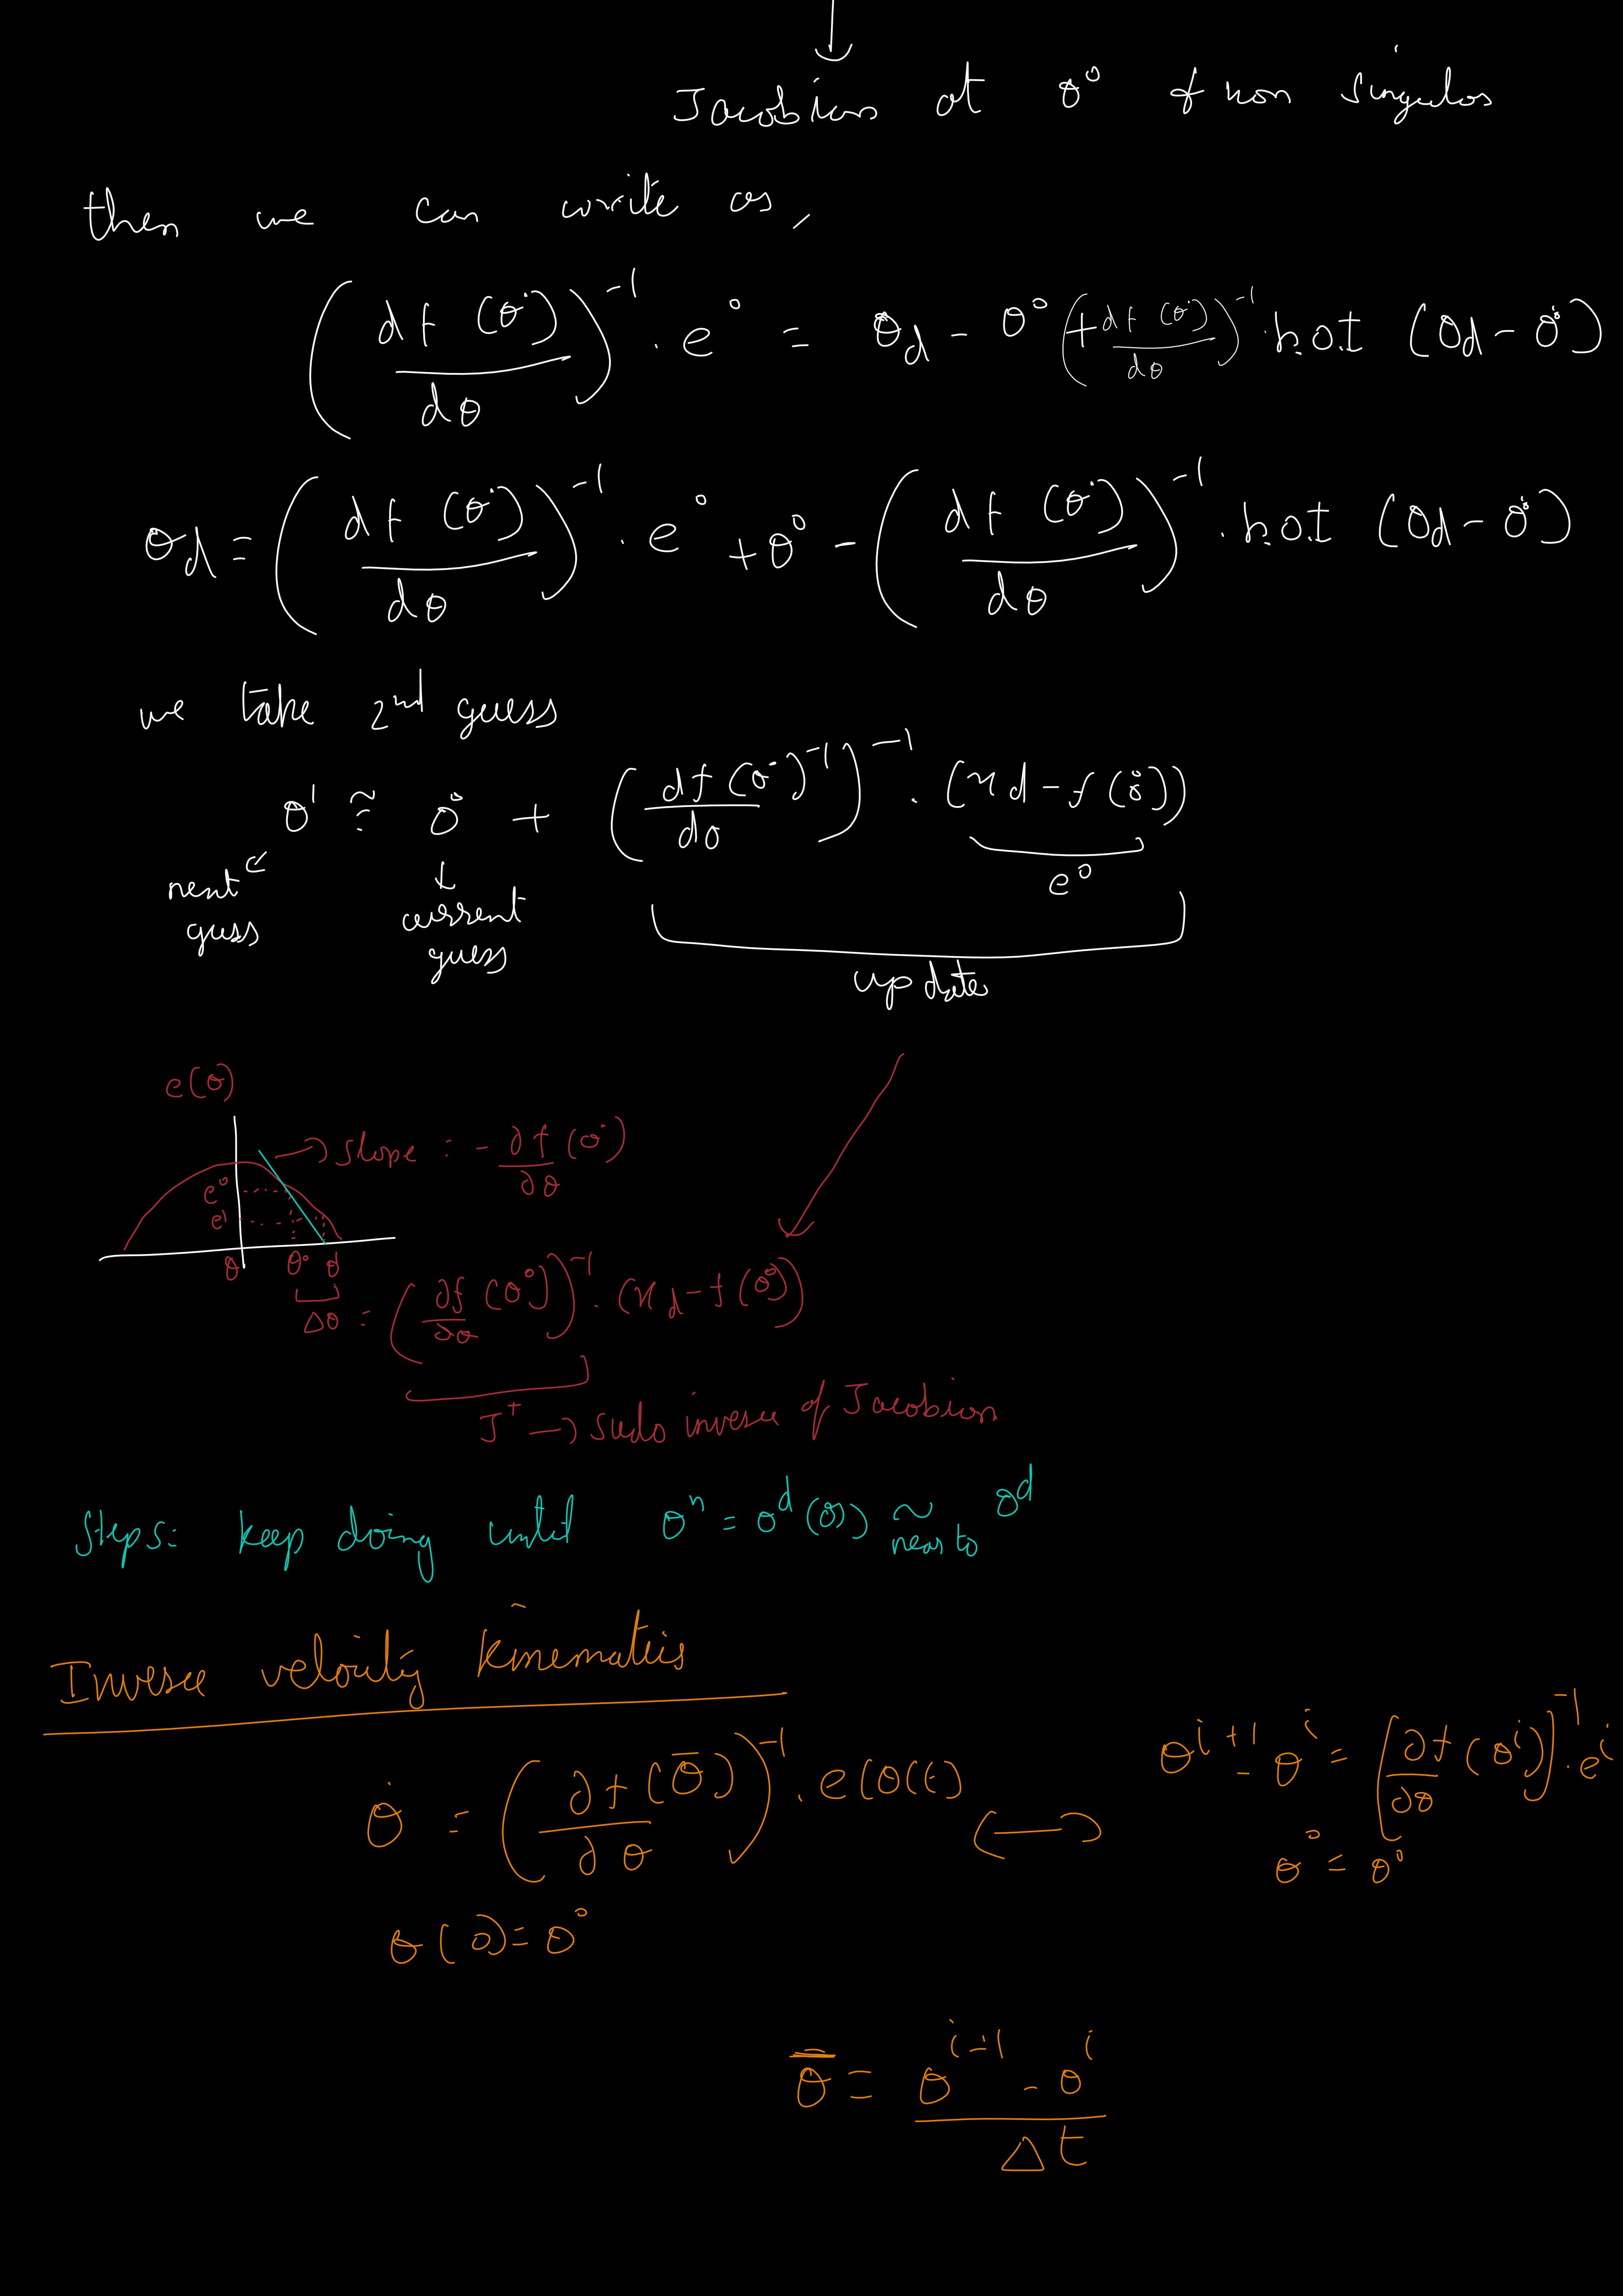 Jacobian at θ° & non singular
then we can write as,
(df (θ°)/dθ)^-1 . e° = θd - θ° (+ df (θ°)/dθ)^-1 . h.o.t (θd - θ°)
θd = (df (θ°)/dθ)^-1 . e° + θ° - (df (θ°)/dθ)^-1 . h.o.t (θd - θ°)
we take 2nd guess
θ' ≅ θ° + (df (θ°)^-1/dθ)^-1 . (xd - f (θ°))
e°
next guss
current guess
update
e(θ)
→ slope : - ∂f/∂θ (θ°)
e°
e'
θ θ° θ'
Δθ = (∂f/∂θ (θ°))^-1 . (xd - f (θ°))
J^+ → sudo inverse of Jacobian
Steps: keep doing until θ^n = θ^d (or) ~ near to θ^d
Inverse velocity kinematics
θ̇ = (∂f (θ̄)/∂θ)^-1 . e(θ(t) ⟷ θ^i+1 - θ^i = [∂f/∂θ (θ^i)]^-1 . e^i
θ° = θ°
θ(0) = θ°
θ̄ = θ^i-1 - θ^i / Δt